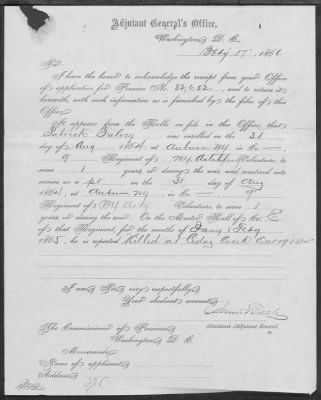 Adjutant General's Office,
Washington, D. C.
Feby 17th, 1866
Sir:
I have the honor to acknowledge the receipt from your Office
of application for Pension No. 82,682, and to return it
herewith, with such information as is furnished by the files of this
Office.
It appears from the Rolls on file in this Office, that
Patrick was enrolled on the 31
day of Aug, 1864, at Auburn NY in Co.
9 Regiment of NY Volunteers, to
serve 1 years, or during the war, and mustered into
service as a Pvt on the 31 day of Aug
1864, at Auburn NY, in Co. 9
Regiment of NY Volunteers, to serve 1
years, or during the war. On the Muster Roll of Co. E
of that Regiment, for the months of Jany & Feby
1865, he is reported Killed at Cedar Creek Oct 19
I am, Sir, very respectfully,
Your obedient servant,
Assistant Adjutant General.
The Commissioner of Pensions
Washington, D. C.
Memoranda:
Name of applicant
Address